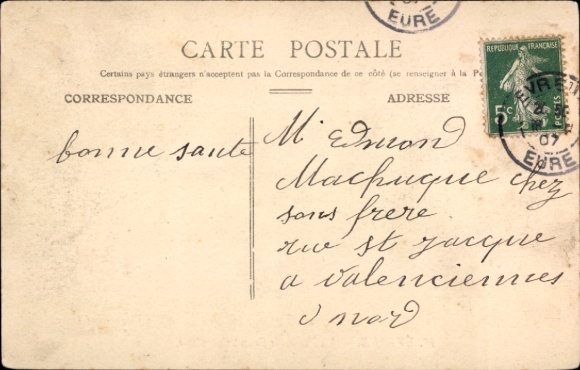 EURE
CARTE POSTALE
Certains pays étrangers n'acceptent pas la Correspondance de ce côté (se renseigner à la
CORRESPONDANCE
ADRESSE
REPUBLIQUE FRANÇAISE
5c
POSTES
07
EURE
bonne sante
Mr Edmond
Machuque chez
sons frere
rue st jacque
a valenciennes
nord